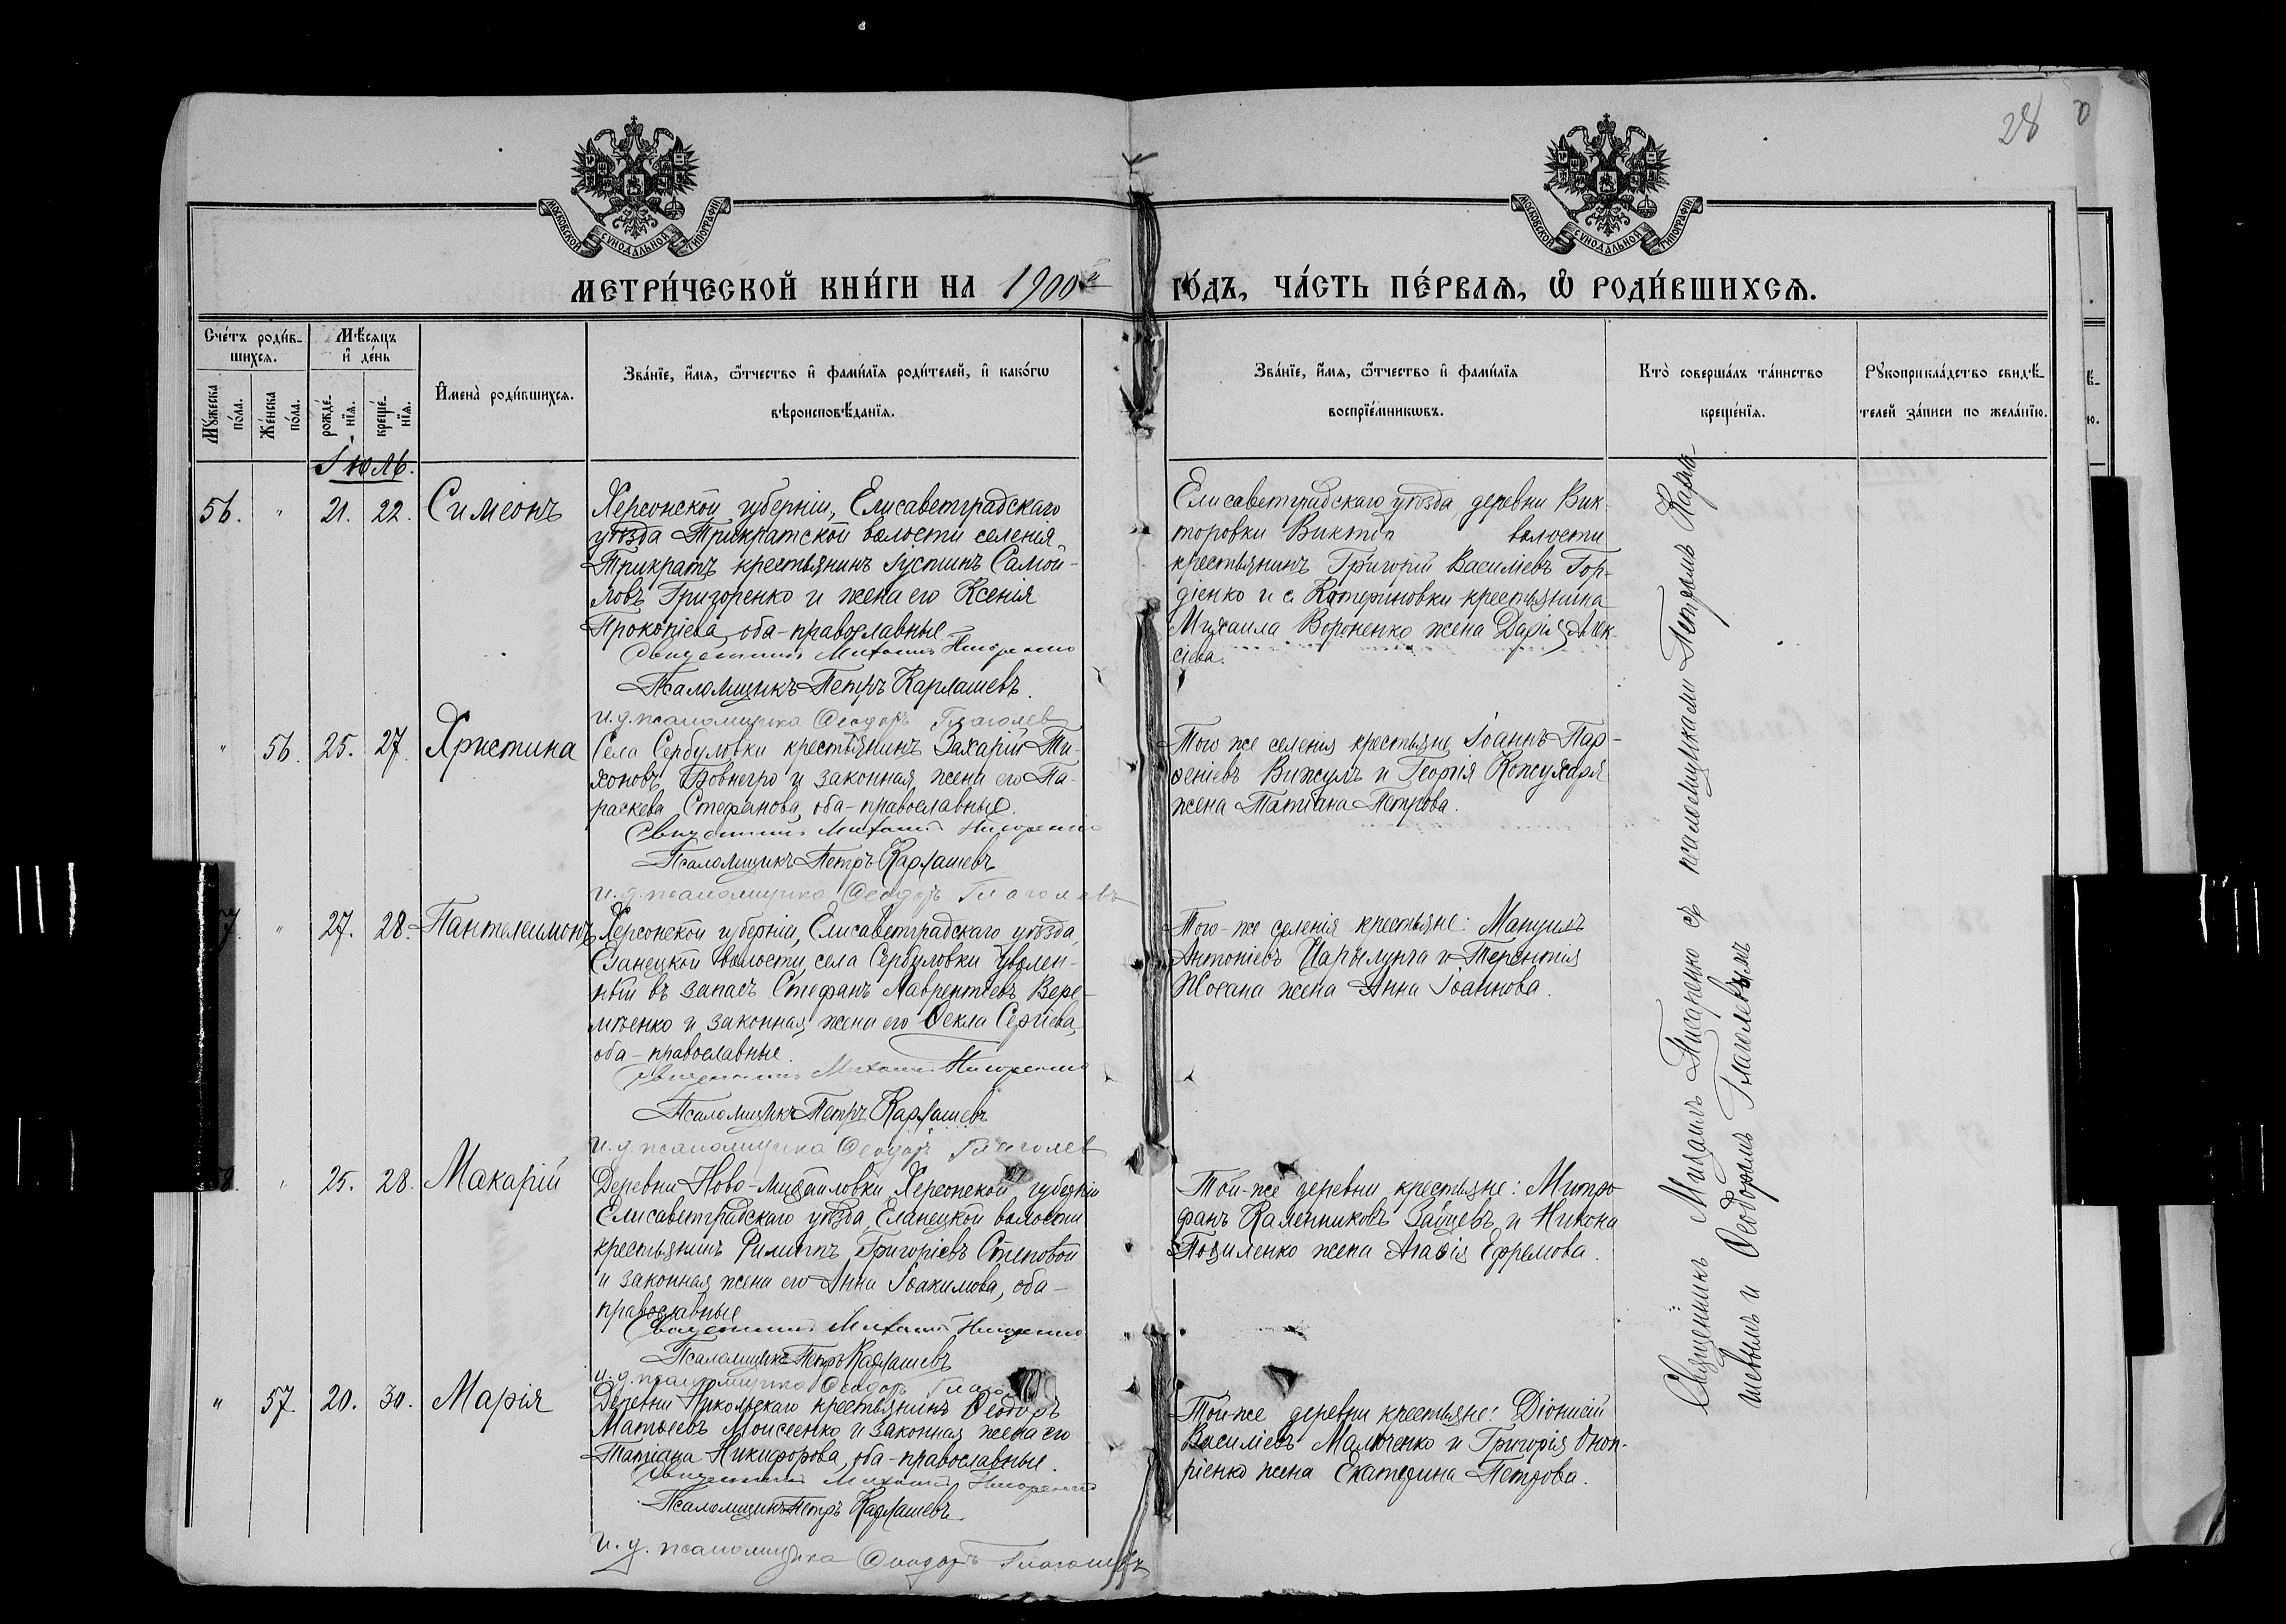 28
МОСКОВСКОЙ СѴНОДАЛЬНОЙ ТИПОГРАФІИ
МОСКОВСКОЙ СѴНОДАЛЬНОЙ ТИПОГРАФІИ
МЕТРИ́ЧЕСКОЙ КНИ́ГИ НА 1900й ГО́ДЪ, ЧА́СТЬ ПЕ́РВАѦ, Ѡ҆ РОДИ́ВШИХСѦ.
Сче́тъ роди́в-
шихсѧ.
Мꙋ́жеска по́ла.
Же́нска по́ла.
Мѣ́сяцъ
и҆ де́нь
рожде́-нїѧ.
креще́-нїѧ.
И҆мена̀ роди́вшихсѧ.
Зва́нїе, и҆́мѧ, ѻ҆́тчество и҆ фами́лїѧ роди́телей, и҆ како́гѡ
вѣроисповѣ́данїѧ.
Зва́нїе, и҆́мѧ, ѻ҆́тчество и҆ фами́лїѧ
воспрїе́мникѡвъ.
Кто̀ соверша́лъ та́инство
креще́нїѧ.
Рꙋкоприкла́дство свидѣ́-
телей за́писи по жела́нїю.
Іюль.
56. " 21. 22. Симеонъ
Херсонской губерніи, Елисаветградскаго
уѣзда Трикратской волости селенія
Трикратъ крестьянинъ Іустинъ Самой-
ловъ Григоренко и жена его Ксенія
Прокопіева, оба-православные.
Священникъ Михаилъ Писаренко
Псаломщикъ Петръ Карлашевъ.
и.д. псаломщика Ѳеодоръ Глаголев
Елисаветградскаго уѣзда, деревни Вик-
торовки Викто волости
крестьянинъ Григорій Василіевъ Гор-
діенко и с. Катериновки крестьянина
Михаила Вороненко жена Дарія Алек-
сіева.
" 56. 25. 27. Христина
Села Сербуловки крестьянинъ Захарій Ти-
хоновъ Бовнегро и законная жена его Па-
раскева Стефанова, оба-православные.
Священникъ Михаилъ Писаренко
Псаломщикъ Петръ Карлашевъ
и.д. псаломщика Ѳеодоръ Глаголевъ
Того же селенія крестьяне Іоаннъ Пар-
ѳеніевъ Вижулъ и Георгія Кожухаря
жена Татіана Петрова.
" 27. 28. Пантелеимонъ
Херсонской губерніи, Елисаветградскаго уѣзда,
Еланецкой волости, села Сербуловки уволен-
ный въ запасъ Стефанъ Лаврентіевъ Вере-
мѣенко и законная жена его Ѳекла Сергіева,
оба-православные.
Священникъ Михаилъ Писаренко
Псаломщикъ Петръ Карлашевъ
и.д. псаломщика Ѳеодоръ Глаголев
Того-же селенія крестьяне: Мануилъ
Антоніевъ и Терентія
жена Анна Іоаннова.
8. " 25. 28. Макарій
Деревни Ново-Михайловки Херсонской губерніи
Елисаветградскаго уѣзда, Еланецкой волости
крестьянинъ Филиппъ Григоріевъ Степовой
и законная жена его Анна Іоакимова, оба-
православные
Священникъ Михаилъ Писаренко
Псаломщикъ Петръ Карлашевъ
и.д. псаломщика Ѳеодоръ
Той-же деревни крестьяне: Митро-
фанъ Каленниковъ Зайцевъ и Никона
жена Агафія Ефремова.
" 57. 20. 30. Марія
Деревни Никольскаго крестьянинъ Ѳеодоръ
Матѳеевъ Моисеенко и законная жена его
Татіана Никифорова, оба-православные.
Священникъ Михаилъ Писаренко
Псаломщикъ Петръ Карлашевъ
и.д. псаломщика Ѳеодоръ Глаголевъ
Той-же деревни крестьяне: Діонисій
Василіевъ Малюченко и Григорія Оноп-
ріенко жена Екатерина Петрова.
Священникъ Михаилъ Писаренко съ псаломщиками Петромъ Карла-
шевымъ и Ѳеодоромъ Глаголевымъ